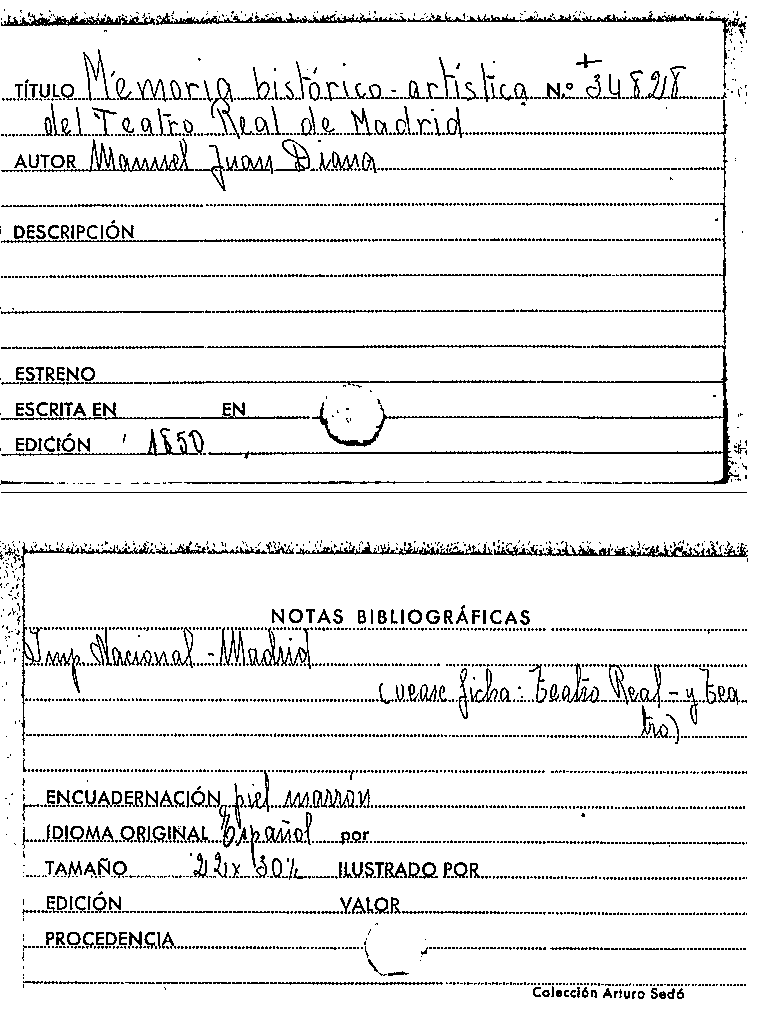 TÍTULO Memoria histórico-artística N.º +34828
del Teatro Real de Madrid
AUTOR Manuel Juan Diana
DESCRIPCIÓN
ESTRENO
ESCRITA EN EN
EDICIÓN 1850
NOTAS BIBLIOGRÁFICAS
Imp. Nacional - Madrid
(vease ficha: Teatro Real - y Tea
tro)
ENCUADERNACIÓN piel marrón
IDIOMA ORIGINAL Español por
TAMAÑO 22 x 30 ½ ILUSTRADO POR
EDICIÓN VALOR
PROCEDENCIA
Colección Arturo Sedó